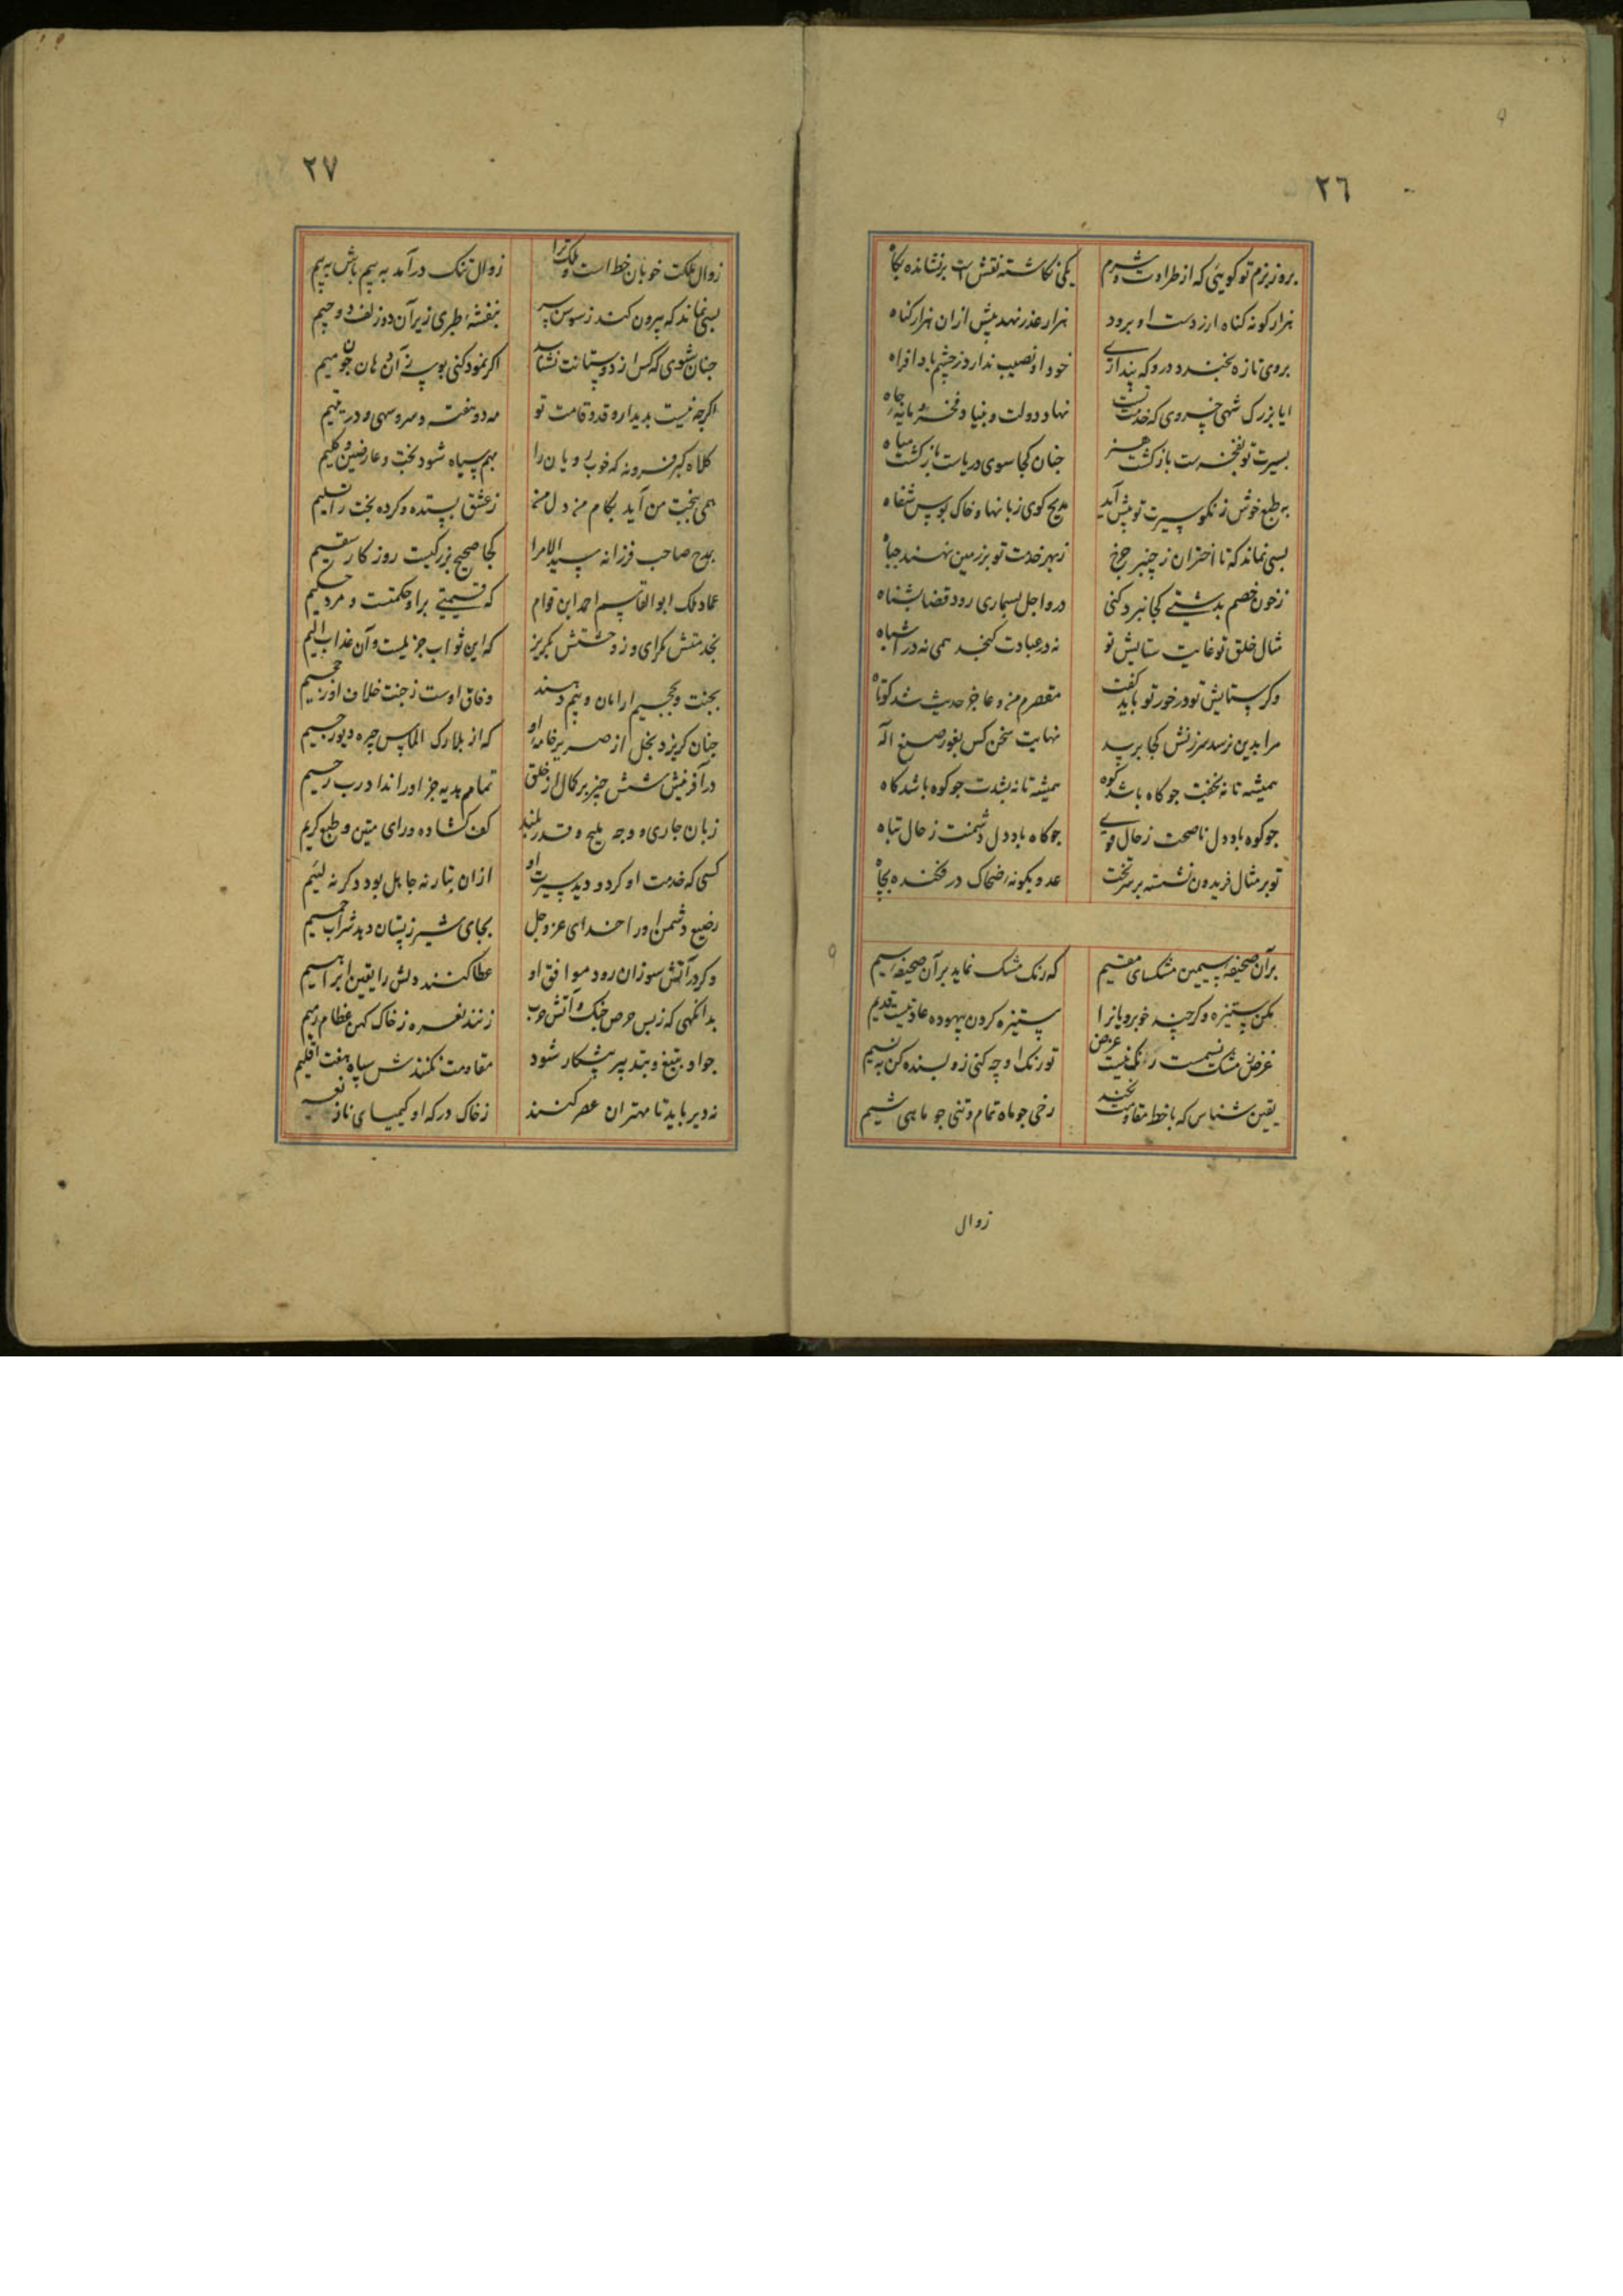 ٢٦
بروز بزم تو گویئی که از طراوت و شرم
یکی نگاشته نقش است برنشانده بگاه
هزار گونه گناه ار ز دست او برود
هزار عذر نهد پیش ازان هزار گناه
بروی تازه بخندد درو که پنداری
خود او نصیب ندارد ز خشم باد افراه
ایا بزرک شهی خسروی که خدمت تست
نهاد دولت و بنیاد فخر و مایه جاه
بسیرت تو بفخرست بازگشت هنر
جنان کجا سوی دریاست بازگشت میاه
به طبع خوش ز نکو سیرت تو پیش آید
مدیح کوی زبانها و خاک بوس شفاه
بسی نماند که تا اختران ز چنبر چرخ
ز بهر خدمت تو بر زمین نهند جباه
ز خون خصم بدشتی کجا نبرد کنی
درو اجل بسماری رود قضا بشناه
مثال خلق تو غایت ستایش تو
نه در عبادت کنجد همی نه در اشباه
وکر ستایش تو در خور تو باید کفت
مقصرم من و عاجز حدیث شد کوتاه
مرا بدین نرسد سرزنش کجا برسد
نهایت سخن کس بغور صنع اله
همیشه تا نه بخفت جو کاه باشد کوه
همیشه تا نه بشدت جو کوه باشد کاه
جو کوه باد دل ناصحت ز حال قوی
جو کاه باد دل دشمنت ز حال تباه
تو بر مثال فریدون نشسته بر سر تخت
عدو بکونه ضحاک درفکنده بجاه
بران صحیفه سیمین مشکسای مقیم
که رنک مشک نماید بران صحیفه سیم
مکن ستیزه وکرچه خوبرویانرا
ستیزه کردن بیهوده عادتیست قدیم
غرض ز مشک نسیمست رنک نیست غرض
تو رنک او چه کنی زو بسنده کن به نسیم
یقین شناس که با خط مقاومت نکند
رخی جو ماه تمام و تنی جو ماهی شیم
زوال
٢٧
زوال ملکت خوبان خط است و ملک ترا
زوال تنک درآمد به بیم باش به بیم
بسی نماند که بیرون کند ز سوسن سر
بنفشه طبری زیر آن دو زلف دو جیم
جنان شوی که کس از دوستانت نشناسد
اکر نمود کنی بوسه زان دهان جون میم
اکرچه نیست بدیدار و قد و قامت تو
مه دو هفته و سرو سهی و در یتیم
کلاه کبر فرو نه که خوب رویان را
بهم سیاه شود بخت و عارضین و کلیم
همی بخبت من آید بکام من دل من
ز عشق بستده و کرده بخت را تسلیم
بمدح صاحب فرزانه سید الامرا
کجا صحیح بزرکیست روز کار سقیم
عماد ملک ابو القاسم احمد ابن قوام
که قسمتی برای حکمتست و مرد حکیم
بخدمتش بکرای و ز وحشتش بکریز
که این ثواب جزیلست و آن عذاب الیم
بجنت و بجحیم ار امان و بیم دهند
وفاق اوست ز جنت خلاف او ز جحیم
جنان کریزد بخل از صریر خامه او
که از بلارک الماس چهره دیو رجیم
در آفرینش شش چیز بر کمال از خلق
تمام هدیه جز او را نداد رب رحیم
زبان جاری و وجه ملیح و قدر بلند
کف کشاده و رای متین و طبع کریم
کسی که خدمت او کرد و دید سیرت او
ازان تبار نه جاهل بود دکر نه لئیم
رضیع دشمن او را خدای عز و جل
بجای شیر ز پستان دهد شراب حمیم
وکر در آتش سوزان رود موافق او
عطا کنند دلش را یقین ابراهیم
بدانکهی که ز بس حرص جنک و آتش حرب
زنند نعره ز خاک کهن عظام رمیم
جو او بتیغ و بتدبیر پیشکار شود
مقاومت نکنندش سپاه هفت اقلیم
نه دیر باید تا مهتران عصر کنند
ز خاک درکه او کیمیای ناز و نعیم